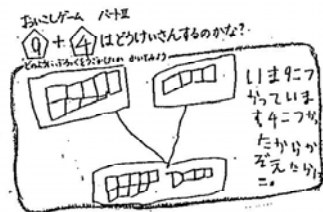 おいこしゲーム パートⅡ
9+4はどうけいさんするのかな?
どのようにぶろっくをうごかしたか かいてみよう
いま9こつ
かっていま
す4こつか
たからか
ぞえたら13
こ。